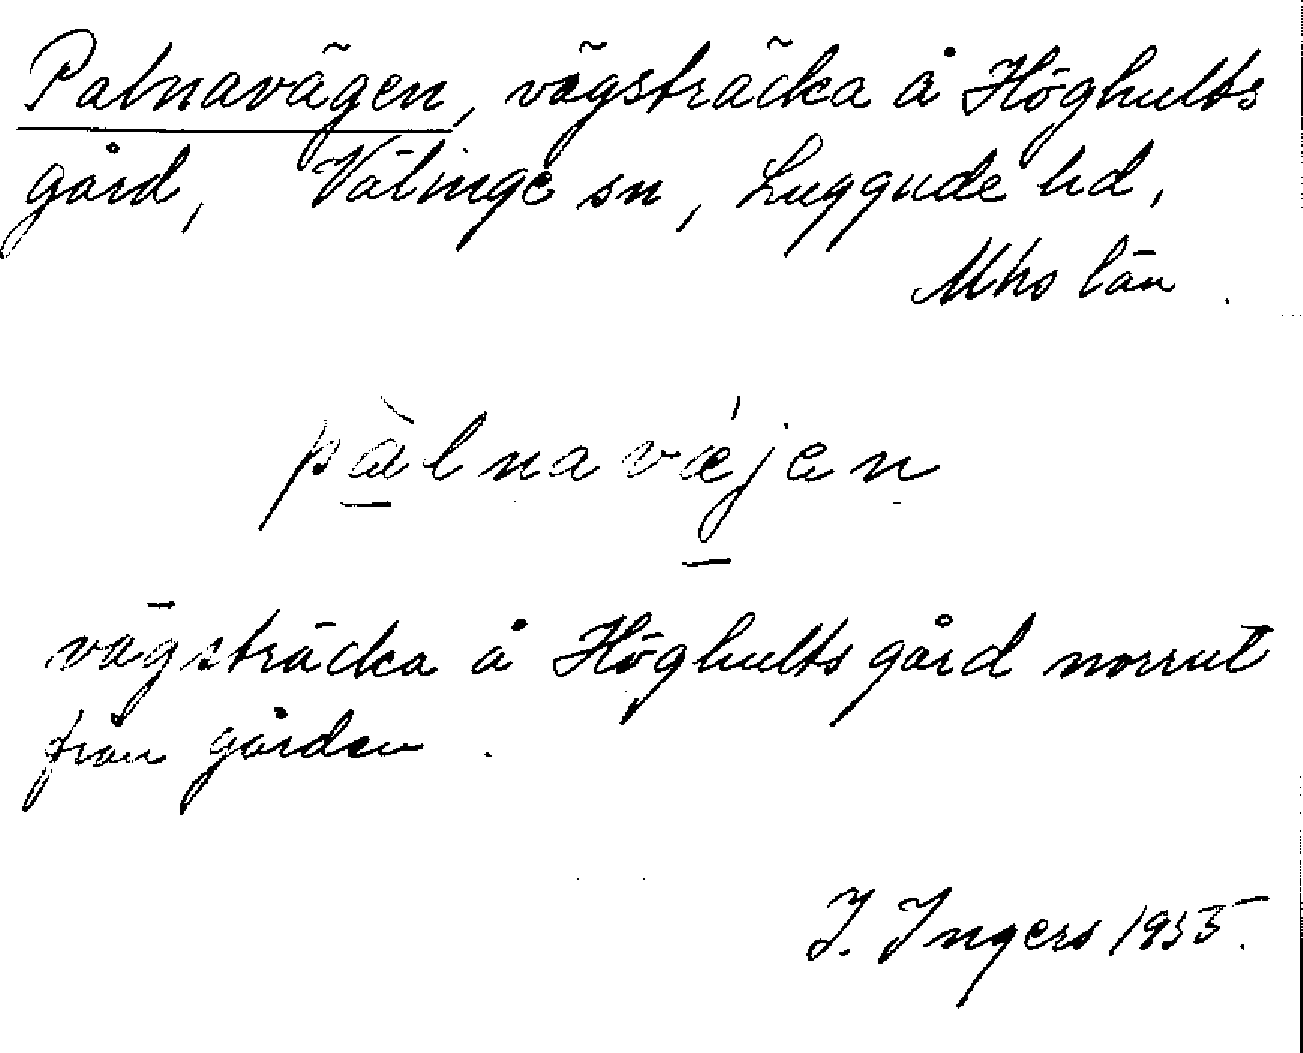 Palnavägen, vägsträcka å Höghults
gård, Välinge sn, Luggude hd,
Mhs län.
pàlnavǽjen
vägsträcka å Höghults gård norrut
från gården.
I. Ingers 1935.